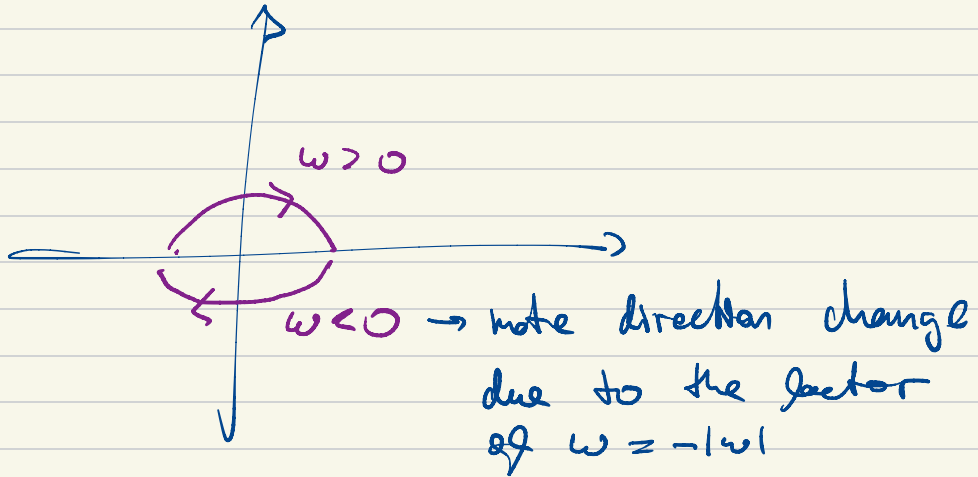 ω > 0
ω < 0 → note direction change
due to the factor
of ω = -|ω|